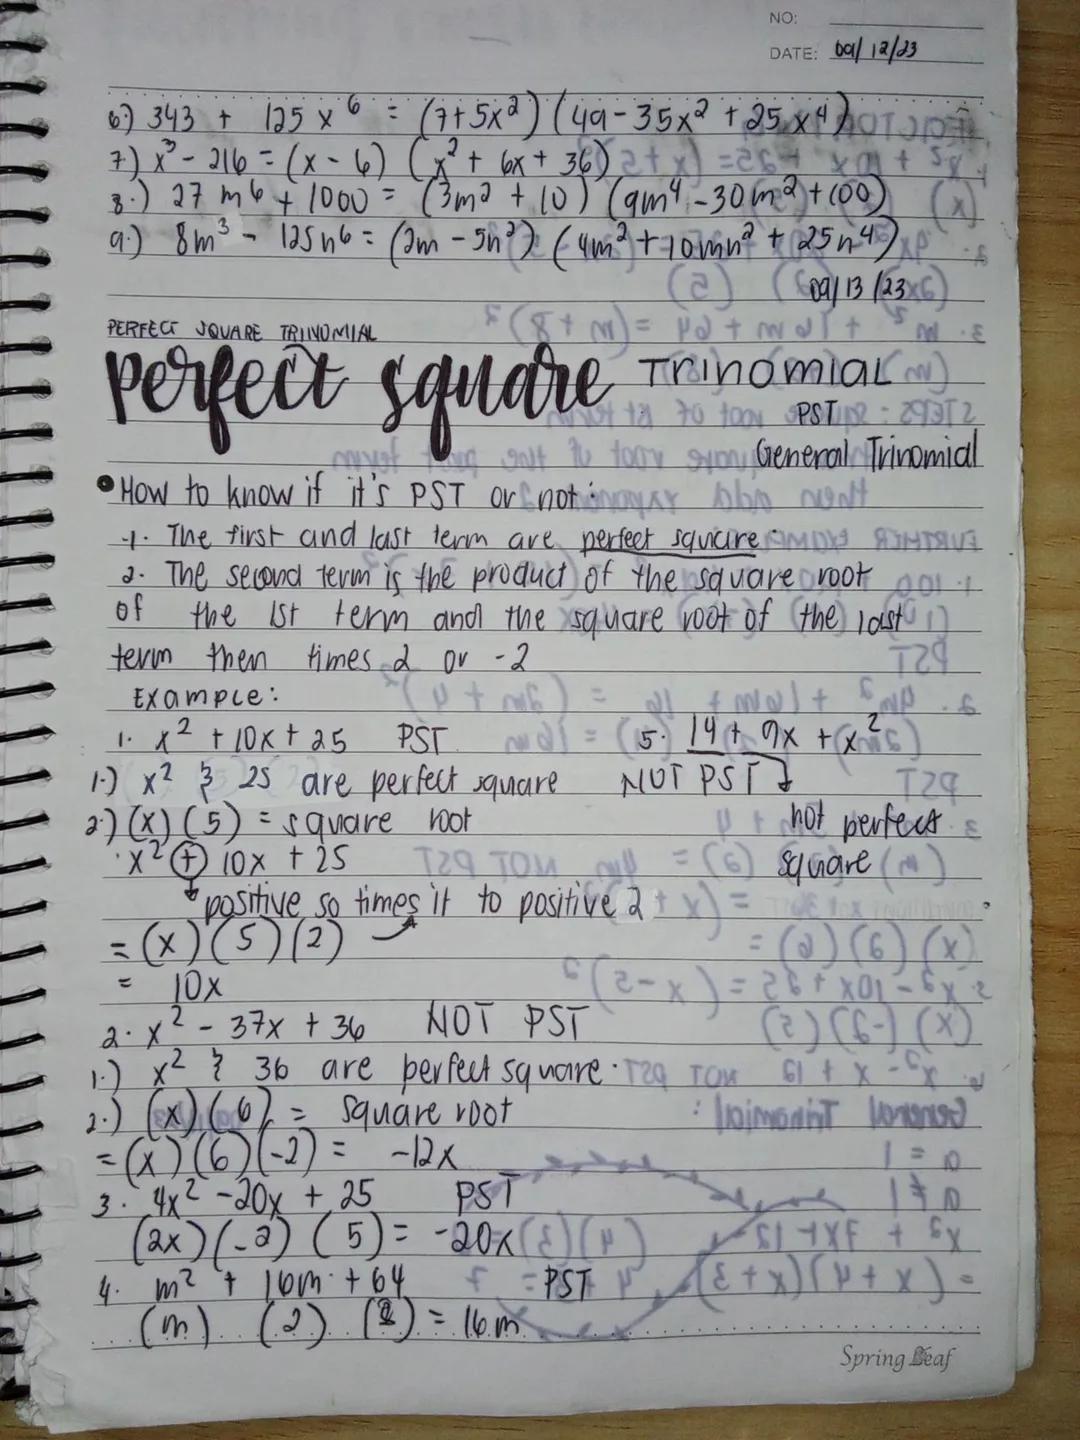 NO:
DATE: 09/12/23
6.) 343 + 125x⁶ = (7+5x²) (49-35x² + 25x⁴)
7.) x³ - 216 = (x - 6) (x² + 6x + 36)
8.) 27m⁶ + 1000 = (3m² + 10) (9m⁴ - 30m² + 100)
9.) 8m³ - 125n⁶ = (2m - 5n²) (4m² + 10mn² + 25n⁴)
09/13/23
PERFECT SQUARE TRINOMIAL
perfect square Trinomial
PST
General Trinomial
• How to know if it's PST or not:
1. The first and last term are perfect square.
2. The second term is the product of the square root
of the 1st term and the square root of the last
term then times 2 or -2
Example:
1. x² + 10x + 25 PST 5. 14 + 9x + x²
1.) x² & 25 are perfect square NOT PST
2.) (x) (5) = square root not perfect
x² + 10x + 25 square
positive so times it to positive 2
= (x) (5) (2)
= 10x
2. x² - 37x + 36 NOT PST
1.) x² & 36 are perfect square.
2.) (x) (6) = square root
= (x) (6) (-2) = -12x
3. 4x² - 20x + 25 PST
(2x) (-2) (5) = -20x
4. m² + 16m + 64 = PST
(m) (2) (8) = 16m
Spring Leaf